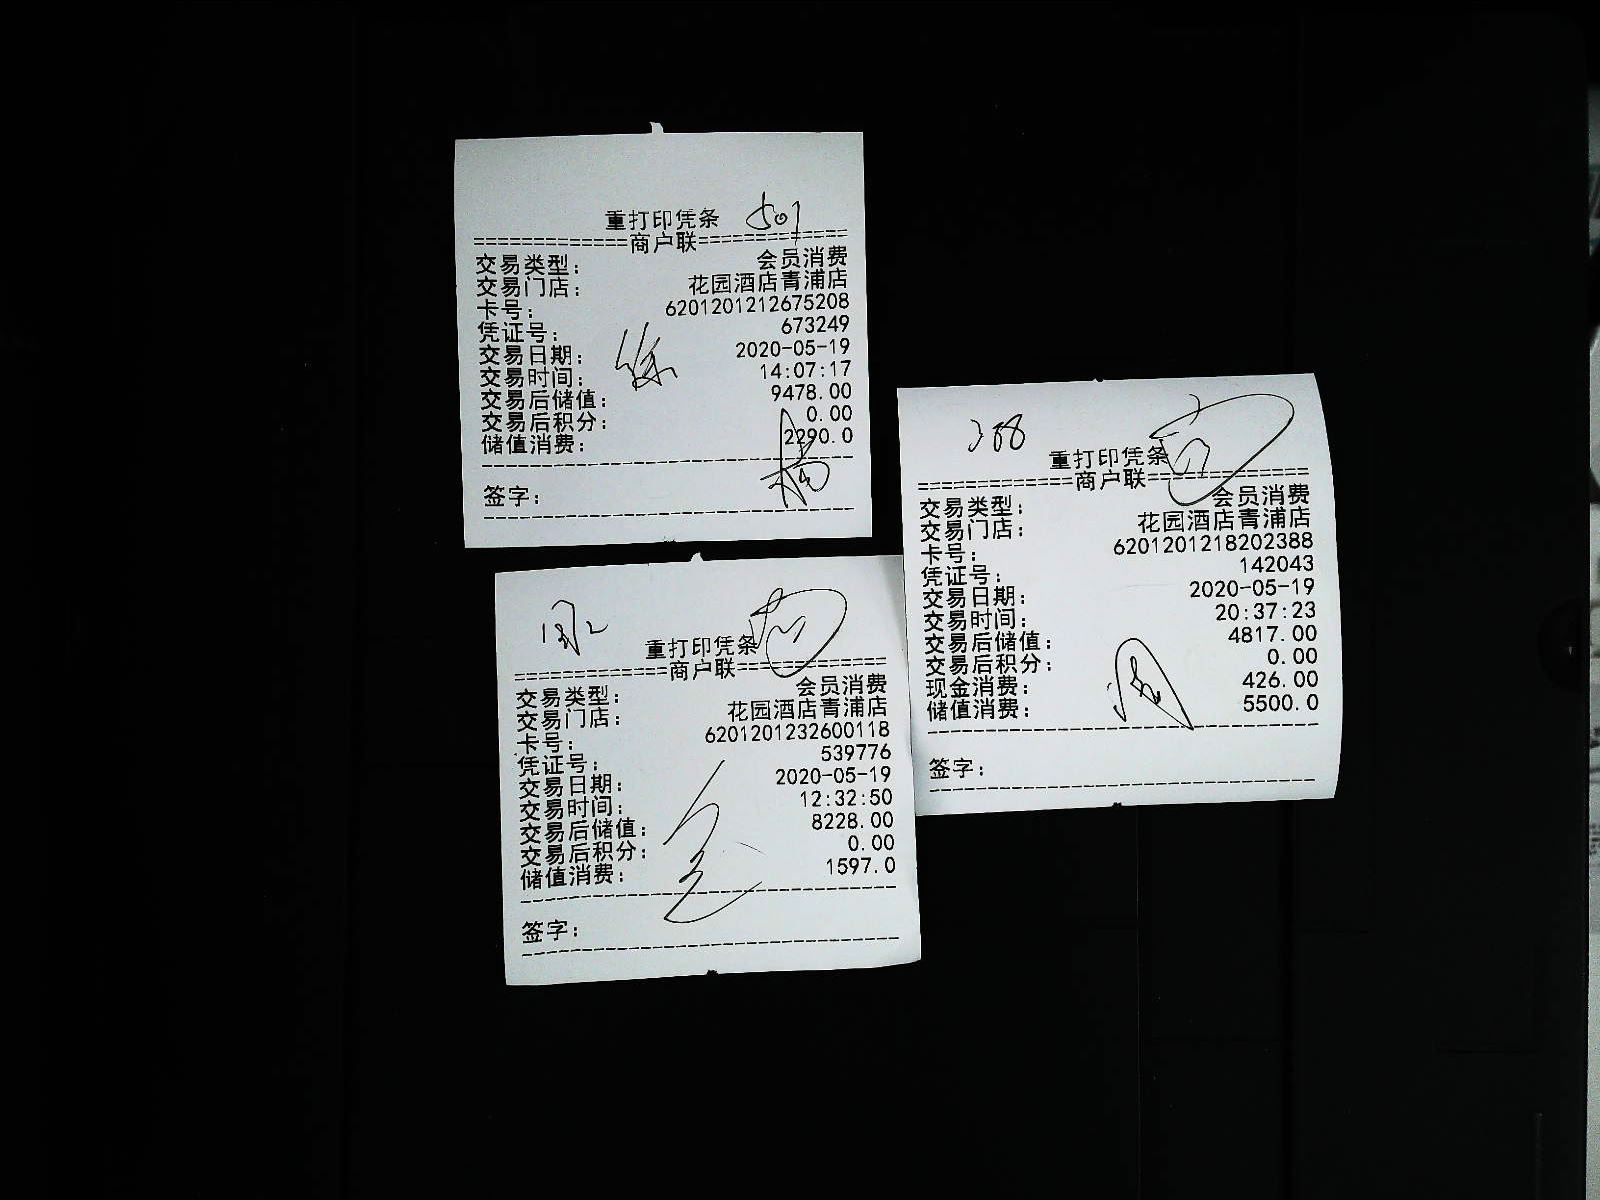 重打印凭条 501
=============商户联=============
交易类型： 会员消费
交易门店： 花园酒店青浦店
卡号： 6201201212675208
凭证号： 673249
交易日期： 2020-05-19
交易时间： 14:07:17
交易后储值： 9478.00
交易后积分： 0.00
储值消费： 2290.0
签字：
重打印凭条
=============商户联=============
交易类型： 会员消费
交易门店： 花园酒店青浦店
卡号： 6201201232600118
凭证号： 539776
交易日期： 2020-05-19
交易时间： 12:32:50
交易后储值： 8228.00
交易后积分： 0.00
储值消费： 1597.0
签字：
重打印凭条
=============商户联=============
交易类型： 会员消费
交易门店： 花园酒店青浦店
卡号： 6201201218202388
凭证号： 142043
交易日期： 2020-05-19
交易时间： 20:37:23
交易后储值： 4817.00
交易后积分： 0.00
现金消费： 426.00
储值消费： 5500.0
签字：